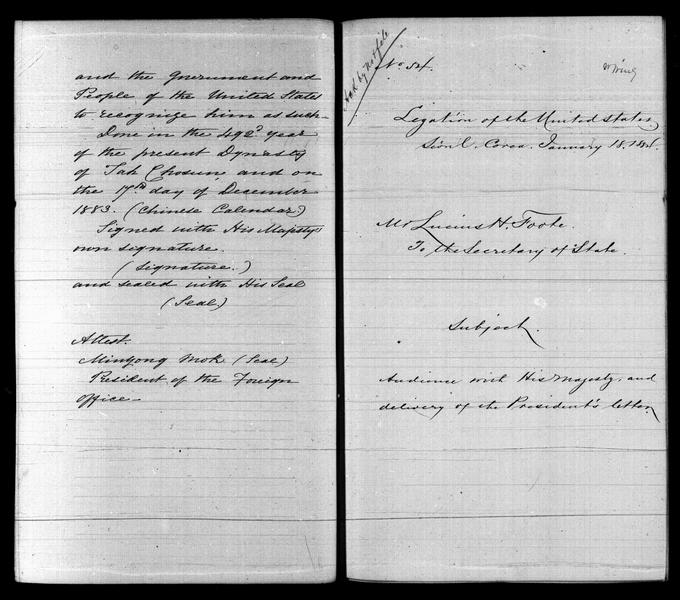 and the Government and
People of the United States
to recognize him as such-
Done in the 492d year
of the present Dynasty
of Tah Chosun, and on
the 17th day of December
1883. (Chinese Calendar)
Signed with His Majesty's
own signature.
(Signature.)
and sealed with His Seal
(Seal)
Attest.
Minyong Mok (Seal)
President of the Foreign
Office-
No 54.
Legation of the United States,
Sioul. Corea. January 18. 1884.
Mr Lucius H. Foote.
To the Secretary of State.
Subject.
Audience with His Majesty, and
delivery of the President's letter.